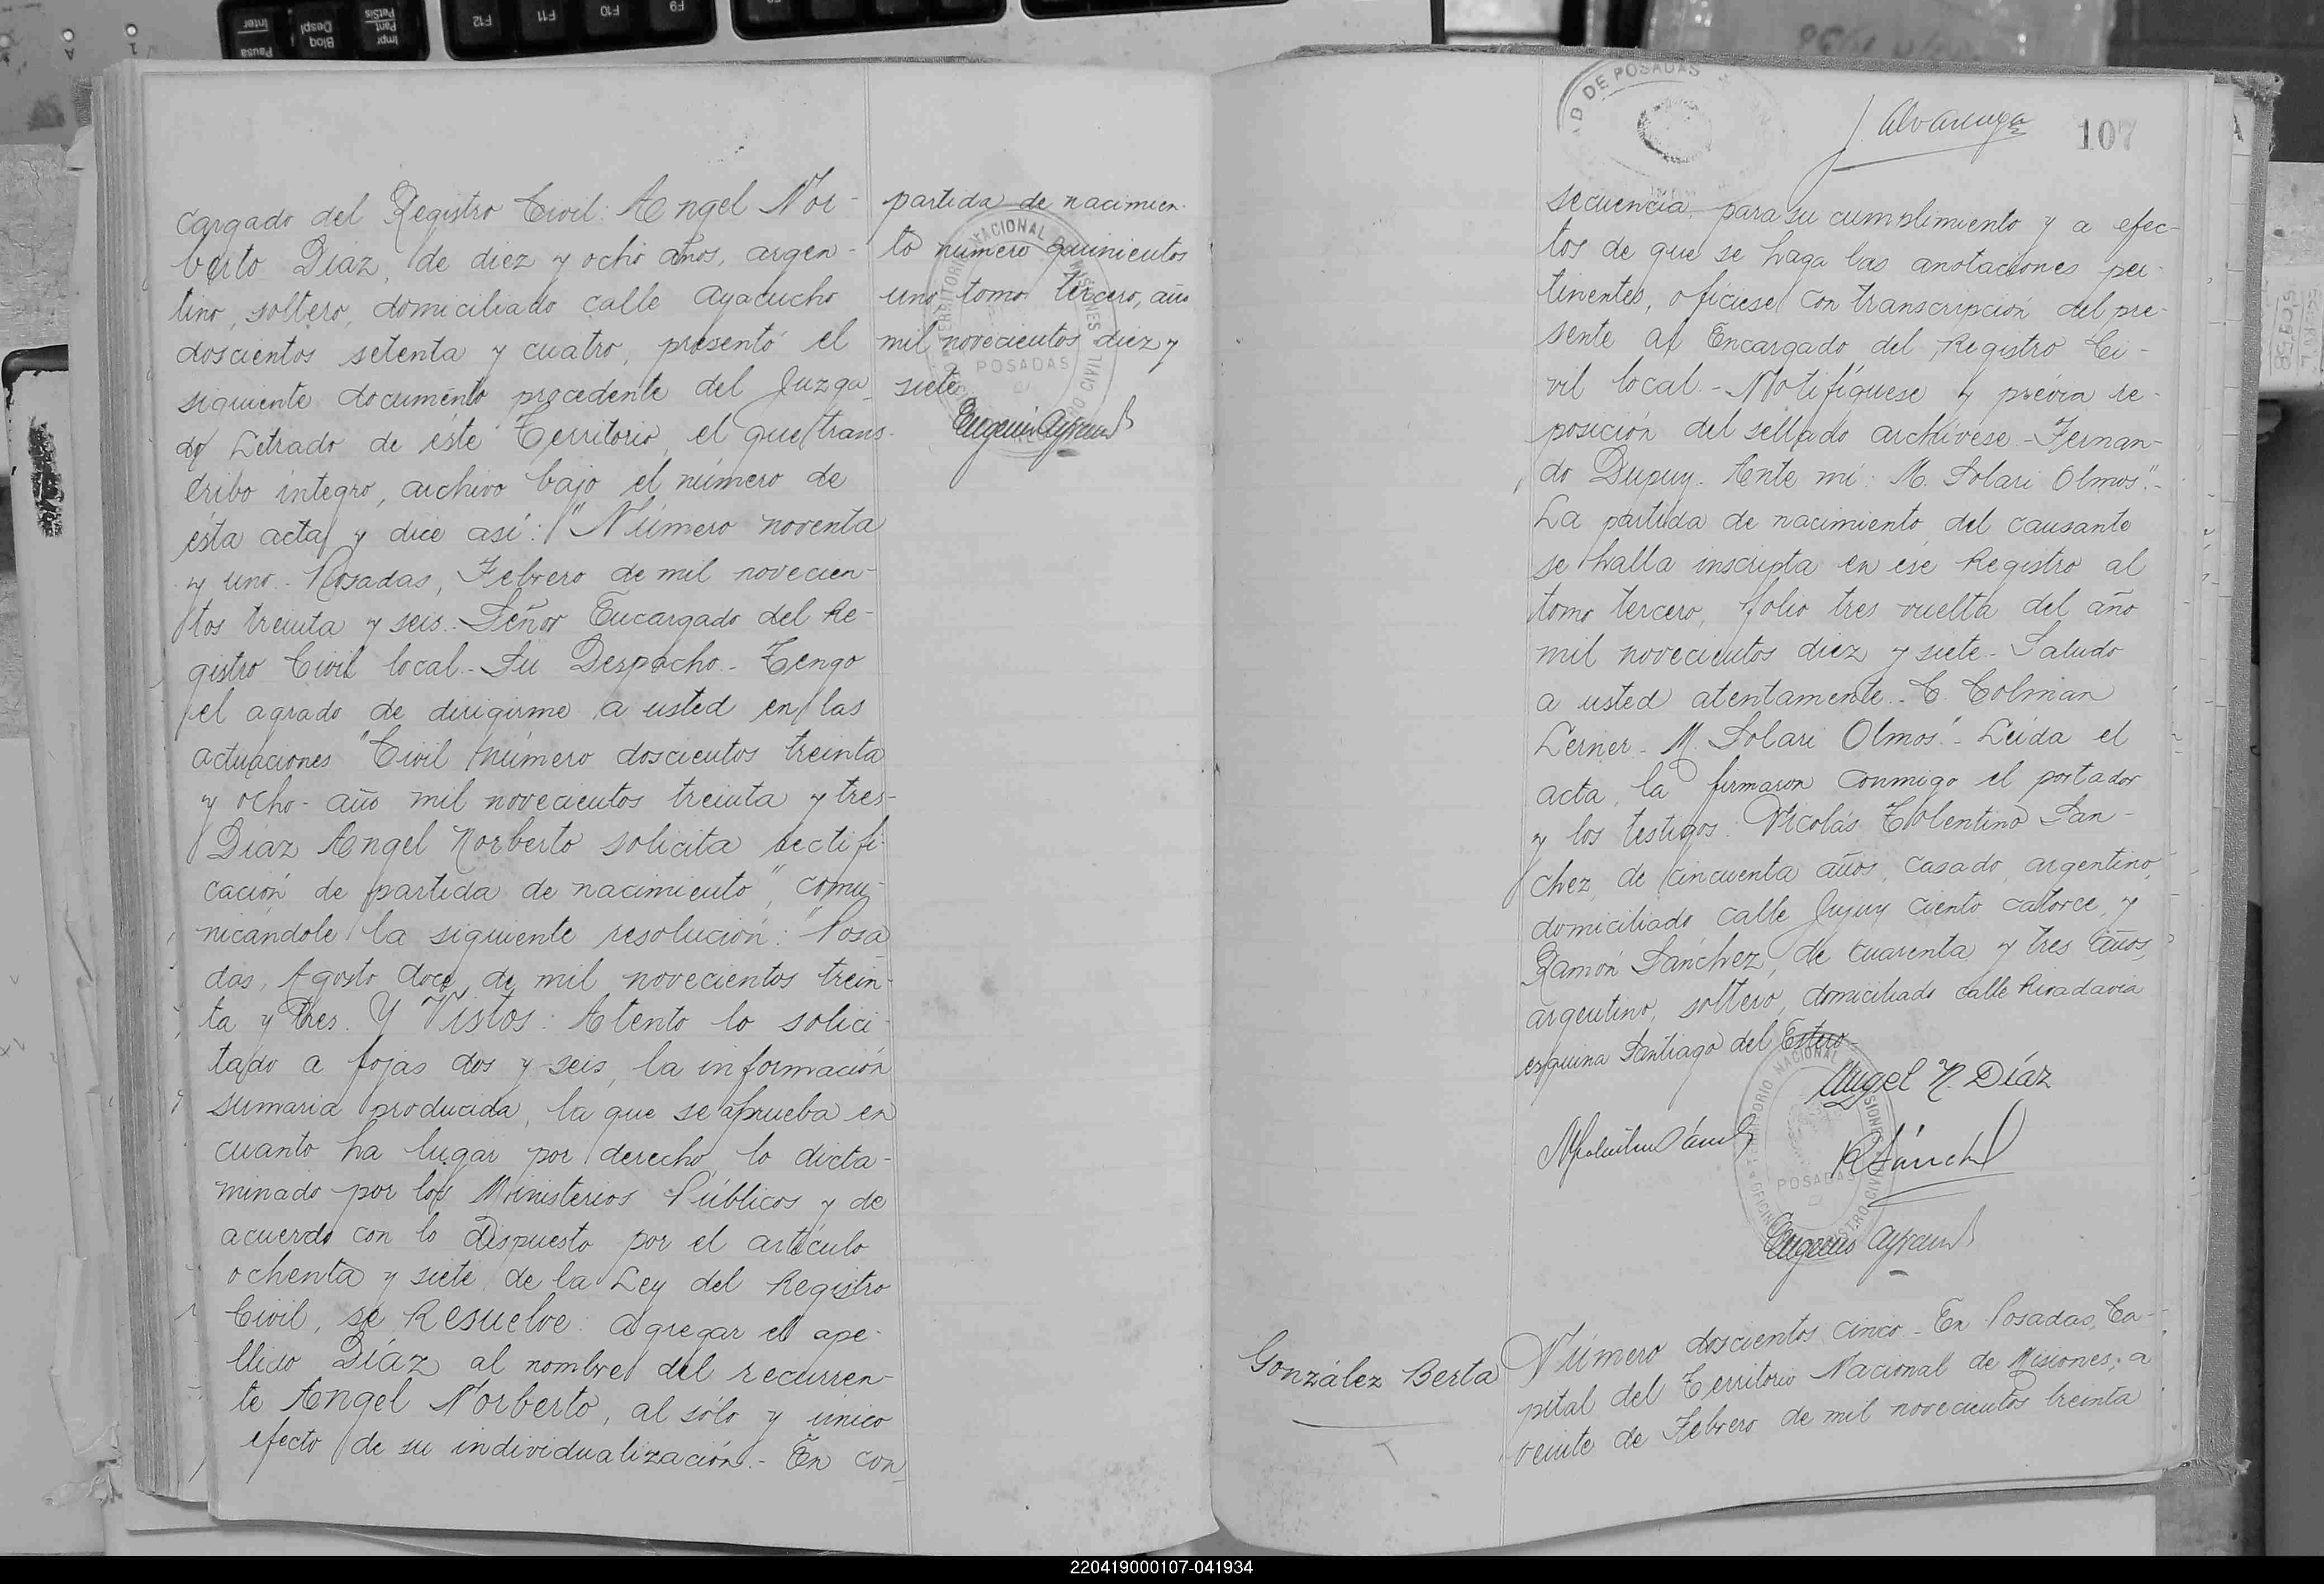 cargado del Registro Civil: Angel Nor-
berto Diaz, de diez y ocho años, argen-
tino, soltero, domiciliado calle Ayacucho
doscientos setenta y cuatro, presentó el
siguiente documento procedente del Juzga-
do Letrado de éste Territorio, el que trans-
cribo íntegro, archivo bajo el número de
ésta acta y dice así: "Número noventa
y uno.- Posadas, Febrero de mil novecien-
tos treinta y seis.- Señor Encargado del Re-
gistro Civil local.- Su Despacho.- Tengo
el agrado de dirigirme a usted en las
actuaciones "Civil número doscientos treinta
y ocho- año mil novecientos treinta y tres-
Díaz Angel Norberto solicita rectifi-
cación de partida de nacimiento", comu-
nicándole la siguiente resolución: "Posa-
das, Agosto doce de mil novecientos trein-
ta y tres. Y Vistos: Atento lo solici-
tado a fojas dos y seis, la información
sumaria producida, la que se aprueba en
cuanto ha lugar por derecho, lo dicta-
minado por los Ministerios Públicos y de
acuerdo con lo dispuesto por el artículo
ochenta y siete de la Ley del Registro
Civil, se Resuelve: agregar el ape-
llido Díaz al nombre del recurren-
te Angel Norberto, al sólo y único
efecto de su individualización.- En con-
partida de nacimien-
to número quinientos
uno tomo tercero, año
mil novecientos diez y
siete
TERRITORIO NACIONAL DE MISIONES
POSADAS
REGISTRO CIVIL
Eugenio Ayrault
DE POSADAS
J. Alvarenga
107
secuencia, para su cumplimiento y a efec-
tos de que se haga las anotaciones per-
tinentes, ofíciese con transcripción del pre-
sente al Encargado del Registro Ci-
vil local.- Notifíquese y prévia re-
posición del sellado archívese.- Fernan-
do Dupuy. Ante mí: M. Solari Olmos".-
La partida de nacimiento del causante
se halla inscripta en ese Registro al
tomo tercero, folio tres vuelta del año
mil novecientos diez y siete.- Saludo
a usted atentamente.- C. Colman
Lerner.- M. Solari Olmos".- Leída el
acta, la firmaron conmigo el portador
y los testigos: Nicolás Tolentino San-
chez, de cincuenta años, casado, argentino,
domiciliado calle Jujuy ciento catorce, y
Ramón Sánchez, de cuarenta y tres años,
argentino, soltero, domiciliado calle Rivadavia
esquina Santiago del Estero.-
Angel N. Díaz
R Sánchez
TERRITORIO NACIONAL DE MISIONES
POSADAS
OFICINA REGISTRO CIVIL
Eugenio Ayrault
González Berta
Número doscientos cinco.- En Posadas, Ca-
pital del Territorio Nacional de Misiones, a
veinte de Febrero de mil novecientos treinta
F12
F11
F10
F9
Impr
Pant
PetSis
Bloq
Despl
Pausa
Inter
220419000107-041934